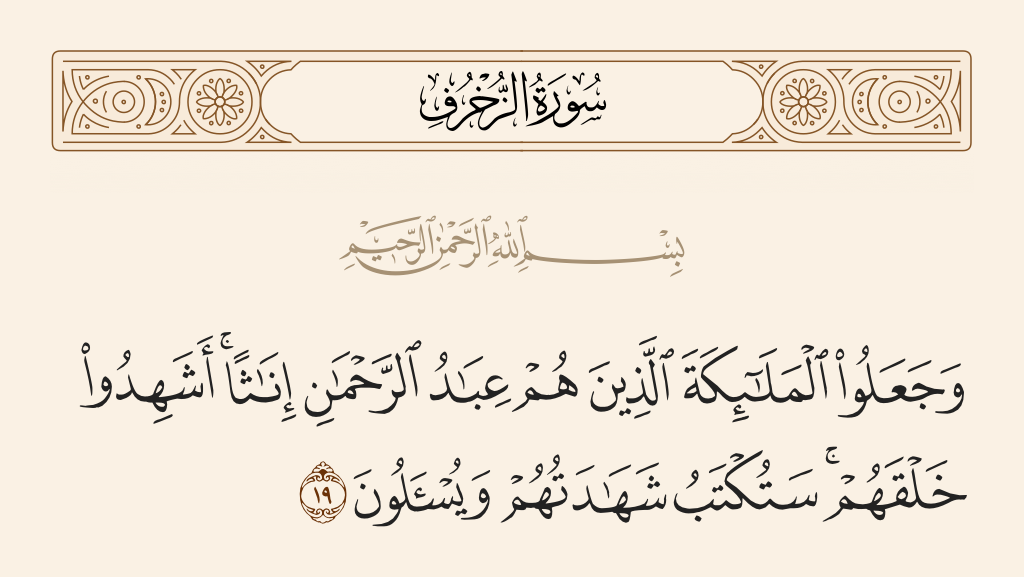 سُورَةُ الزُّخْرُفِ
بِسْمِ ٱللَّهِ ٱلرَّحْمَٰنِ ٱلرَّحِيمِ
وَجَعَلُوا۟ ٱلْمَلَـٰٓئِكَةَ ٱلَّذِينَ هُمْ عِبَـٰدُ ٱلرَّحْمَـٰنِ إِنَـٰثًا ۚ أَشَهِدُوا۟
خَلْقَهُمْ ۚ سَتُكْتَبُ شَهَـٰدَتُهُمْ وَيُسْـَٔلُونَ ١٩